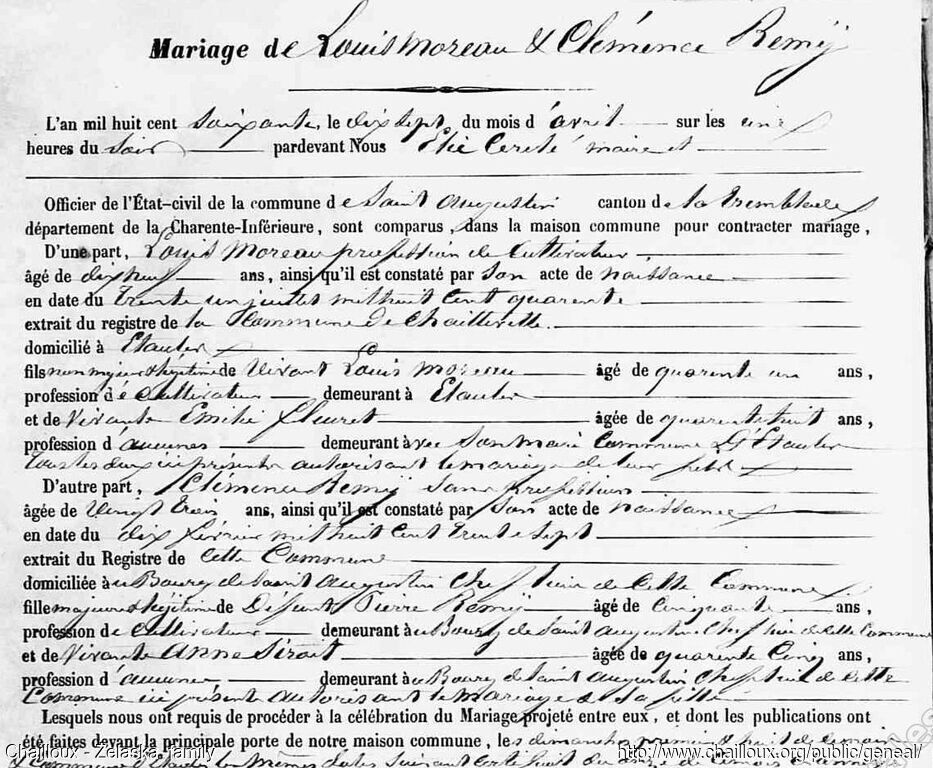 Mariage de Louis Moreau & Clémence Remÿ
L'an mil huit cent soixante, le dix sept du mois d'avril sur les une
heures du soir pardevant Nous Elie Cerclé maire et
Officier de l'État-civil de la commune de Saint Augustin canton de la tremblade
département de la Charente-Inférieure, sont comparus, dans la maison commune pour contracter mariage,
D'une part, Louis Moreau profession de Cultivateur,
âgé de dix neuf ans, ainsi qu'il est constaté par son acte de naissance
en date du trente un juillet mil huit cent quarente
extrait du registre de la Commune de Chaillevette.
domicilié à Etaules
fils non majeur & légitime de Vivant Louis Moreau âgé de quarente un ans,
profession de Cultivateur demeurant à Etaules
et de Vivante Emilie Fleuret âgée de quarente huit ans,
profession d'aucunes demeurant avec son mari Commune d'Etaules
tous les deux ici présents autorisant le mariage de leur fils
D'autre part, Clémence Remÿ sans profession
âgée de Vingt trois ans, ainsi qu'il est constaté par son acte de naissance
en date du dix février mil huit cent trente sept
extrait du Registre de cette Commune
domiciliée au Bourg de Saint Augustin Chef lieu de Cette Commune
fille majeure & légitime de Défunt Pierre Remÿ âgé de Cinquante ans,
profession de Cultivateur demeurant au Bourg de Saint Augustin Chef lieu de cette Commune
et de Vivante Anne âgée de quarente Cinq ans,
profession d'aucune demeurant à u Bourg de Saint Augustin Chef lieu de cette
Commune ici présente autorisant le mariage de sa fille
Lesquels nous ont requis de procéder à la célébration du Mariage projeté entre eux, et dont les publications ont
été faites devant la principale porte de notre maison commune, les dimanches premier & huit de ce mois
Chailloux - Zelaska family
http://www.chailloux.org/public/geneal/